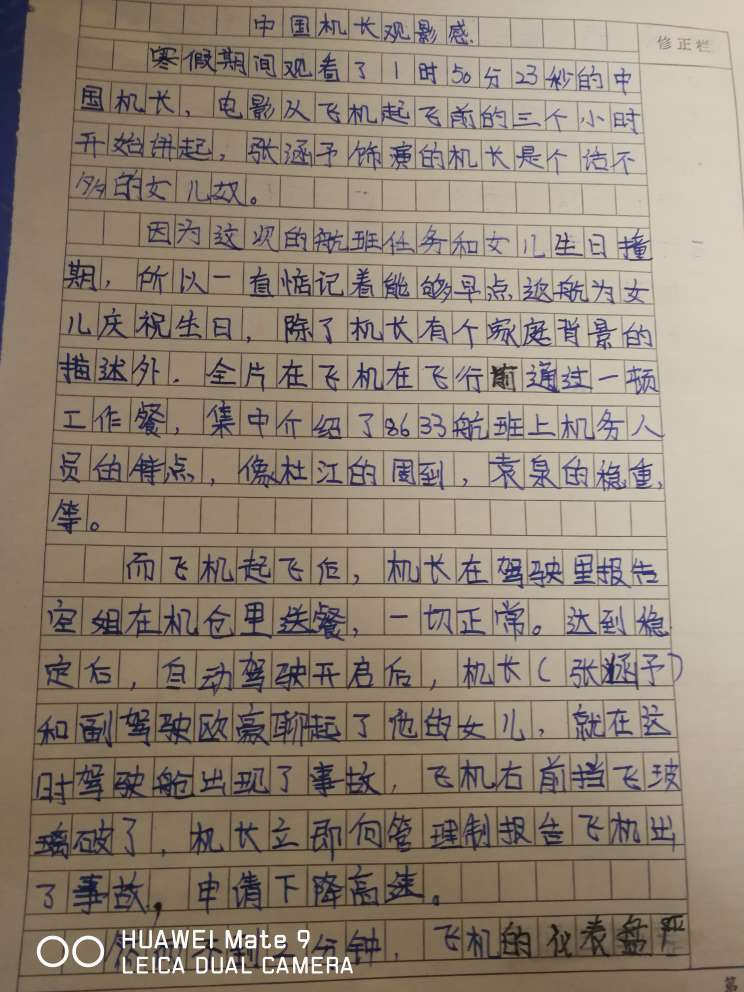 中国机长观影感
修正栏
寒假期间观看了1时50分23秒的中
国机长，电影从飞机起飞前的三个小时
开始讲起，张涵予饰演的机长是个话不
多的女儿奴。
因为这次的航班任务和女儿生日撞
期，所以一直惦记着能够早点返航为女
儿庆祝生日，除了机长有个家庭背景的
描述外，全片在飞机在飞行前通过一顿
工作餐，集中介绍了8633航班上机务人
员的特点，像杜江的周到，袁泉的稳重，
等。
而飞机起飞后，机长在驾驶里报告
空姐在机仓里送餐，一切正常。达到稳
定后，自动驾驶开启后，机长（张涵予）
和副驾驶欧豪聊起了他的女儿，就在这
时驾驶舱出现了事故，飞机右前挡飞玻
璃破了，机长立即向管理制报告飞机出
了事故，申请下降高速。
不到 分钟，飞机的仪表盘严
HUAWEI Mate 9
LEICA DUAL CAMERA
第